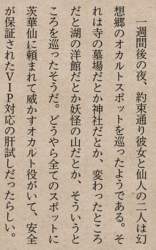 一週間後の夜、約束通り彼女と仙人の二人は幻
想郷のオカルトスポットを巡ったようである。そ
れは寺の墓場だとか神社だとか、変わったところ
だと湖の洋館だとか妖怪の山だとか、そういうと
ころを巡ったそうだ。どうやら全てのスポットに
茨華仙に頼まれて威かすオカルト役がいて、安全
が保証されたVIP対応の肝試しだったらしい。